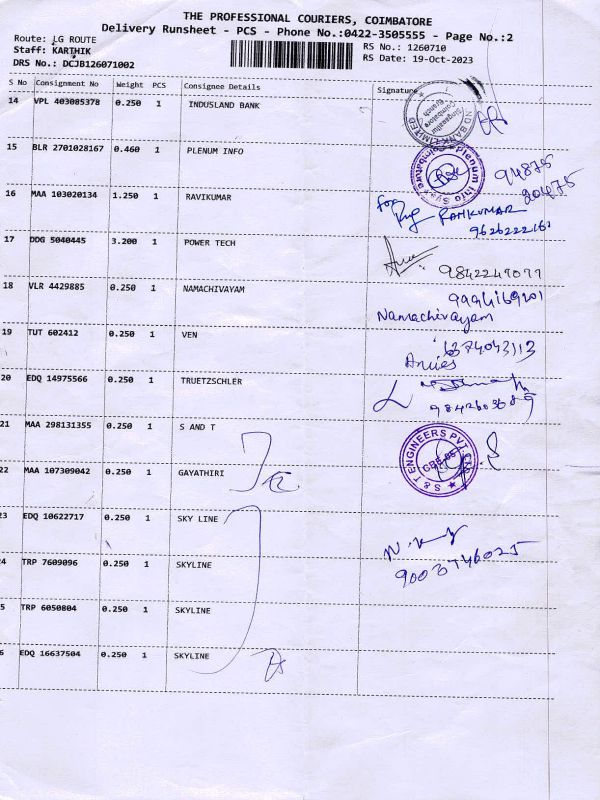 THE PROFESSIONAL COURIERS, COIMBATORE
Delivery Runsheet - PCS - Phone No.:0422-3505555 - Page No.:2
Route: LG ROUTE
RS No.: 1260710
Staff: KARTHIK
RS Date: 19-Oct-2023
DRS No.: DCJB126071002
S No Consignment No Weight PCS Consignee Details Signature
14 VPL 403085378 0.250 1 INDUSLAND BANK
15 BLR 2701028167 0.460 1 PLENUM INFO
94875
20475
16 MAA 103020134 1.250 1 RAVIKUMAR
for
RAMKUMAR
17 DDG 5040445 3.200 1 POWER TECH
18 VLR 4429885 0.250 1 NAMACHIVAYAM
Namachivayam
19 TUT 602412 0.250 1 VEN
6374043113
20 EDQ 14975566 0.250 1 TRUETZSCHLER
21 MAA 298131355 0.250 1 S AND T
S & T ENGINEERS PVT. LTD.
22 MAA 107309042 0.250 1 GAYATHIRI
23 EDQ 10622717 0.250 1 SKY LINE
9003746025
4 TRP 7609096 0.250 1 SKYLINE
5 TRP 6050804 0.250 1 SKYLINE
6 EDQ 16637504 0.250 1 SKYLINE